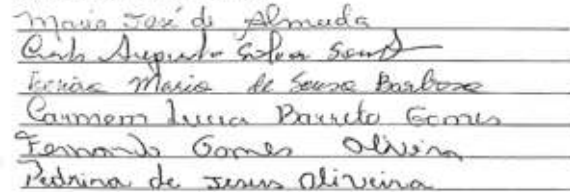 Maria José de Almeida
Augusto Souza
Maria de Sousa Barbosa
Carmem Lucia Barreto Gomes
Fernando Gomes Oliveira
Pedrina de Jesus Oliveira